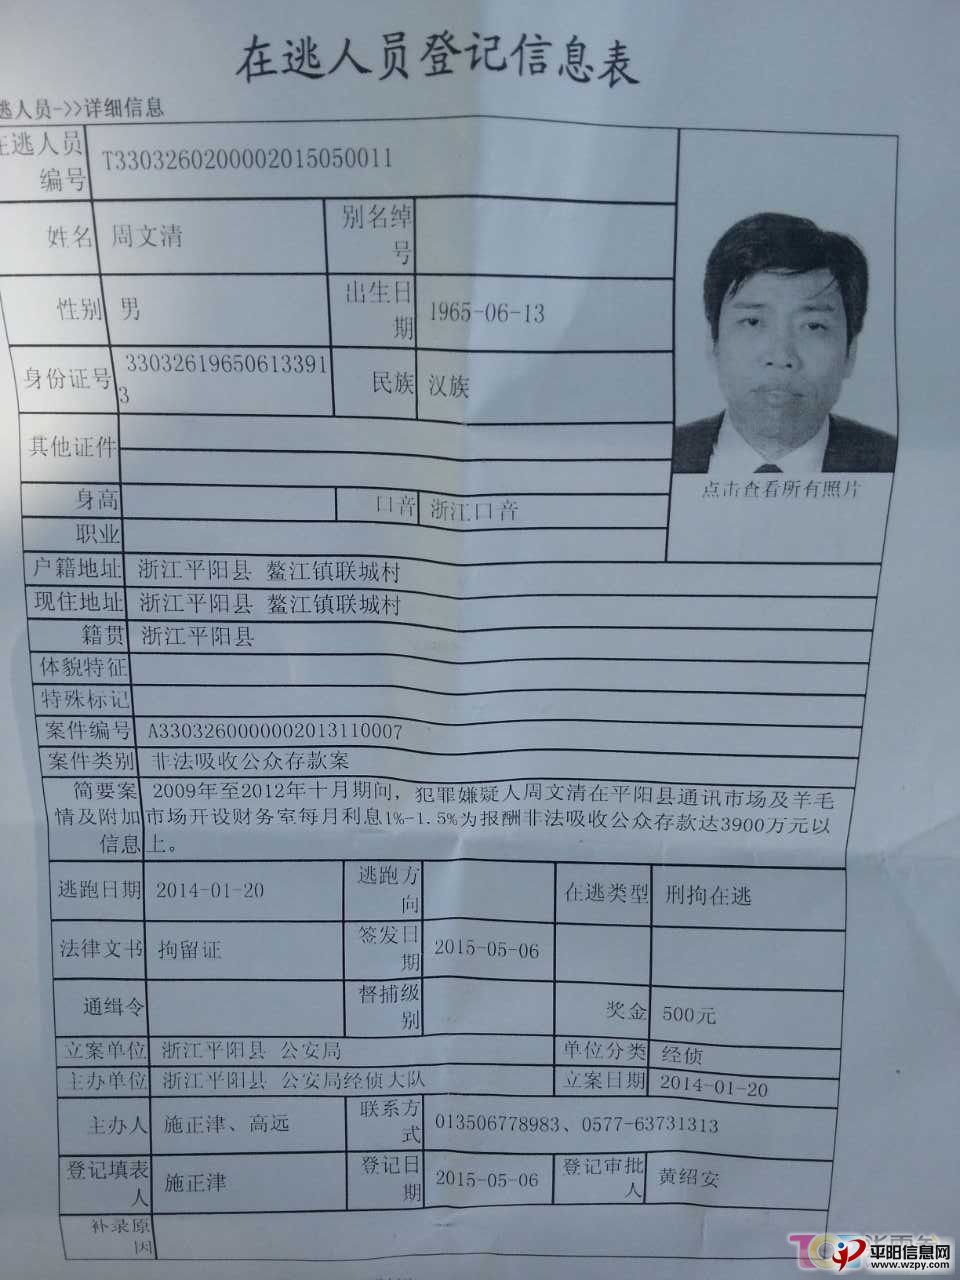 在逃人员登记信息表
逃人员->>详细信息
在逃人员
编号
T3303260200002015050011
姓名
周文清
别名绰
号
性别
男
出生日
期
1965-06-13
身份证号
33032619650613391
3
民族
汉族
其他证件
点击查看所有照片
身高
口音
浙江口音
职业
户籍地址
浙江平阳县 鳌江镇联城村
现住地址
浙江平阳县 鳌江镇联城村
籍贯
浙江平阳县
体貌特征
特殊标记
案件编号
A3303260000002013110007
案件类别
非法吸收公众存款案
简要案
情及附加
信息
2009年至2012年十月期间，犯罪嫌疑人周文清在平阳县通讯市场及羊毛
市场开设财务室每月利息1%-1.5%为报酬非法吸收公众存款达3900万元以
上。
逃跑日期
2014-01-20
逃跑方
向
在逃类型
刑拘在逃
法律文书
拘留证
签发日
期
2015-05-06
通缉令
督捕级
别
奖金
500元
立案单位
浙江平阳县 公安局
单位分类
经侦
主办单位
浙江平阳县 公安局经侦大队
立案日期
2014-01-20
主办人
施正津、高远
联系方
式
013506778983、0577-63731313
登记填表
人
施正津
登记日
期
2015-05-06
登记审批
人
黄绍安
补录原
因
平阳信息网
www.wzpy.com